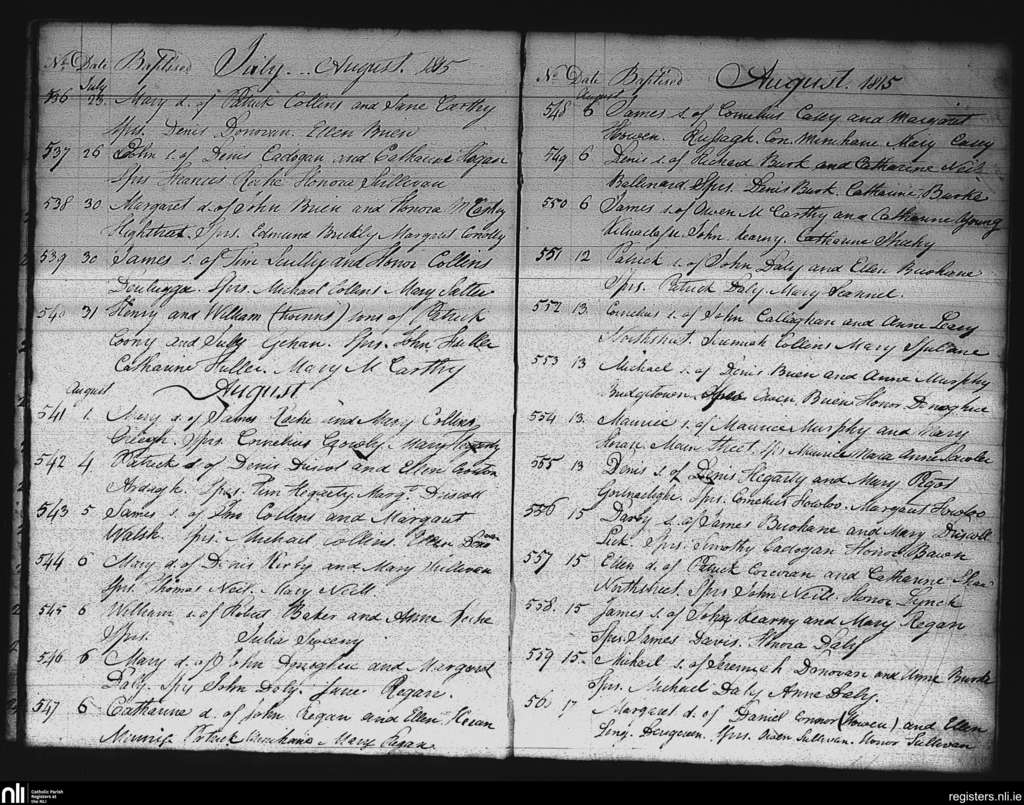 No Date Baptised July... August. 1815
July
536 23 Mary d. of Patrick Collins and Jane Carthy
Sprs. Denis Donovan. Ellen Brien
537 26 John s. of Denis Cadogan and Catharine Hogan
Sprs Francis Roche Honora Sullivan
538 30 Margaret d. of John Brien and Honora McCarthy
Highstreet. Sprs. Edmund Buckly Margaret Conolly
539 30 James s. of Tim Scully and Honor Collins
Sprs. Michael Collins Mary Salter
540 31 Henry and William (twinns) sons of Patrick
Coony and July Gehan. Sprs. John Huller
Catharine Huller. Mary McCarthy
August August
541 1. Mary d. of James Roche and Mary Collins
Sprs. Cornelius Crowly. Mary
542 4 Patrick s. of Denis Driscol and Ellen
Ardagh. Sprs. Tim Hegarty. Margt. Driscoll
543 5 James s. of Collins and Margaret
Walsh. Sprs. Michael Collins Ellen Donovan
544 6 Mary d. of Denis Kirby and Mary Sullivan
Sprs. Thomas Neill. Mary Neill
545 6 William s. of Robert Baker and Anne Roche
Sprs. Julia Sweeny
546 6 Mary d. of John Donoghue and Margaret
Daly. Sprs John Daly. Jane Regan.
547 6 Catharine d. of John Regan and Ellen
Patrick Mary Regan
No Date Baptised August. 1815
August
548 6 James s. of Cornelius Casey and Margaret
Howen. Con. Minihane Mary Casey
549 6 Denis s. of Richard Burk and Catharine Neill
Sprs. Denis Burk. Catharine Burke
550 6 James s. of Owen McCarthy and Catharine Young
John Kearny. Catharine Sheehy
551 12 Patrick s. of John Daly and Ellen Buohane
Sprs. Patrick Daly. Mary Scannel.
552 13. Cornelius s. of John Callaghan and Anne Leary
Northstreet. Jeremiah Collins Mary Spillane
553 13 Michael s. of Denis Buen and Anne Murphy
Bridgetown. Sprs Owen Buen Honor Donoghue
554 13. Maurice s. of Maurice Murphy and Mary
Horan. Main Street. Sprs Maurice Anne
555 13 Denis s. of Denis Hegarty and Mary Regan
Sprs. Cornelius Howloo. Margaret Howloo
556 15 Darby s. of James Buohane and Mary Driscoll
Lick. Sprs. Timothy Cadogan Honor Bawn
557 15 Ellen d. of Patrick Corcoran and Catharine Shea
Northstreet. Sprs John Neill. Honor Lynch
558. 15 James s. of John Kearny and Mary Regan
Sprs. James Davis. Honora Daly
559 15. Michael s. of Jeremiah Donovan and Anne Burke
Sprs. Michael Daly Anne Daly.
560 17 Margaret d. of Daniel Connor (Howen) and Ellen
Long. Sprs. Owen Sullivan. Honor Sullivan
nli Catholic Parish
Registers at
the NLI
registers.nli.ie